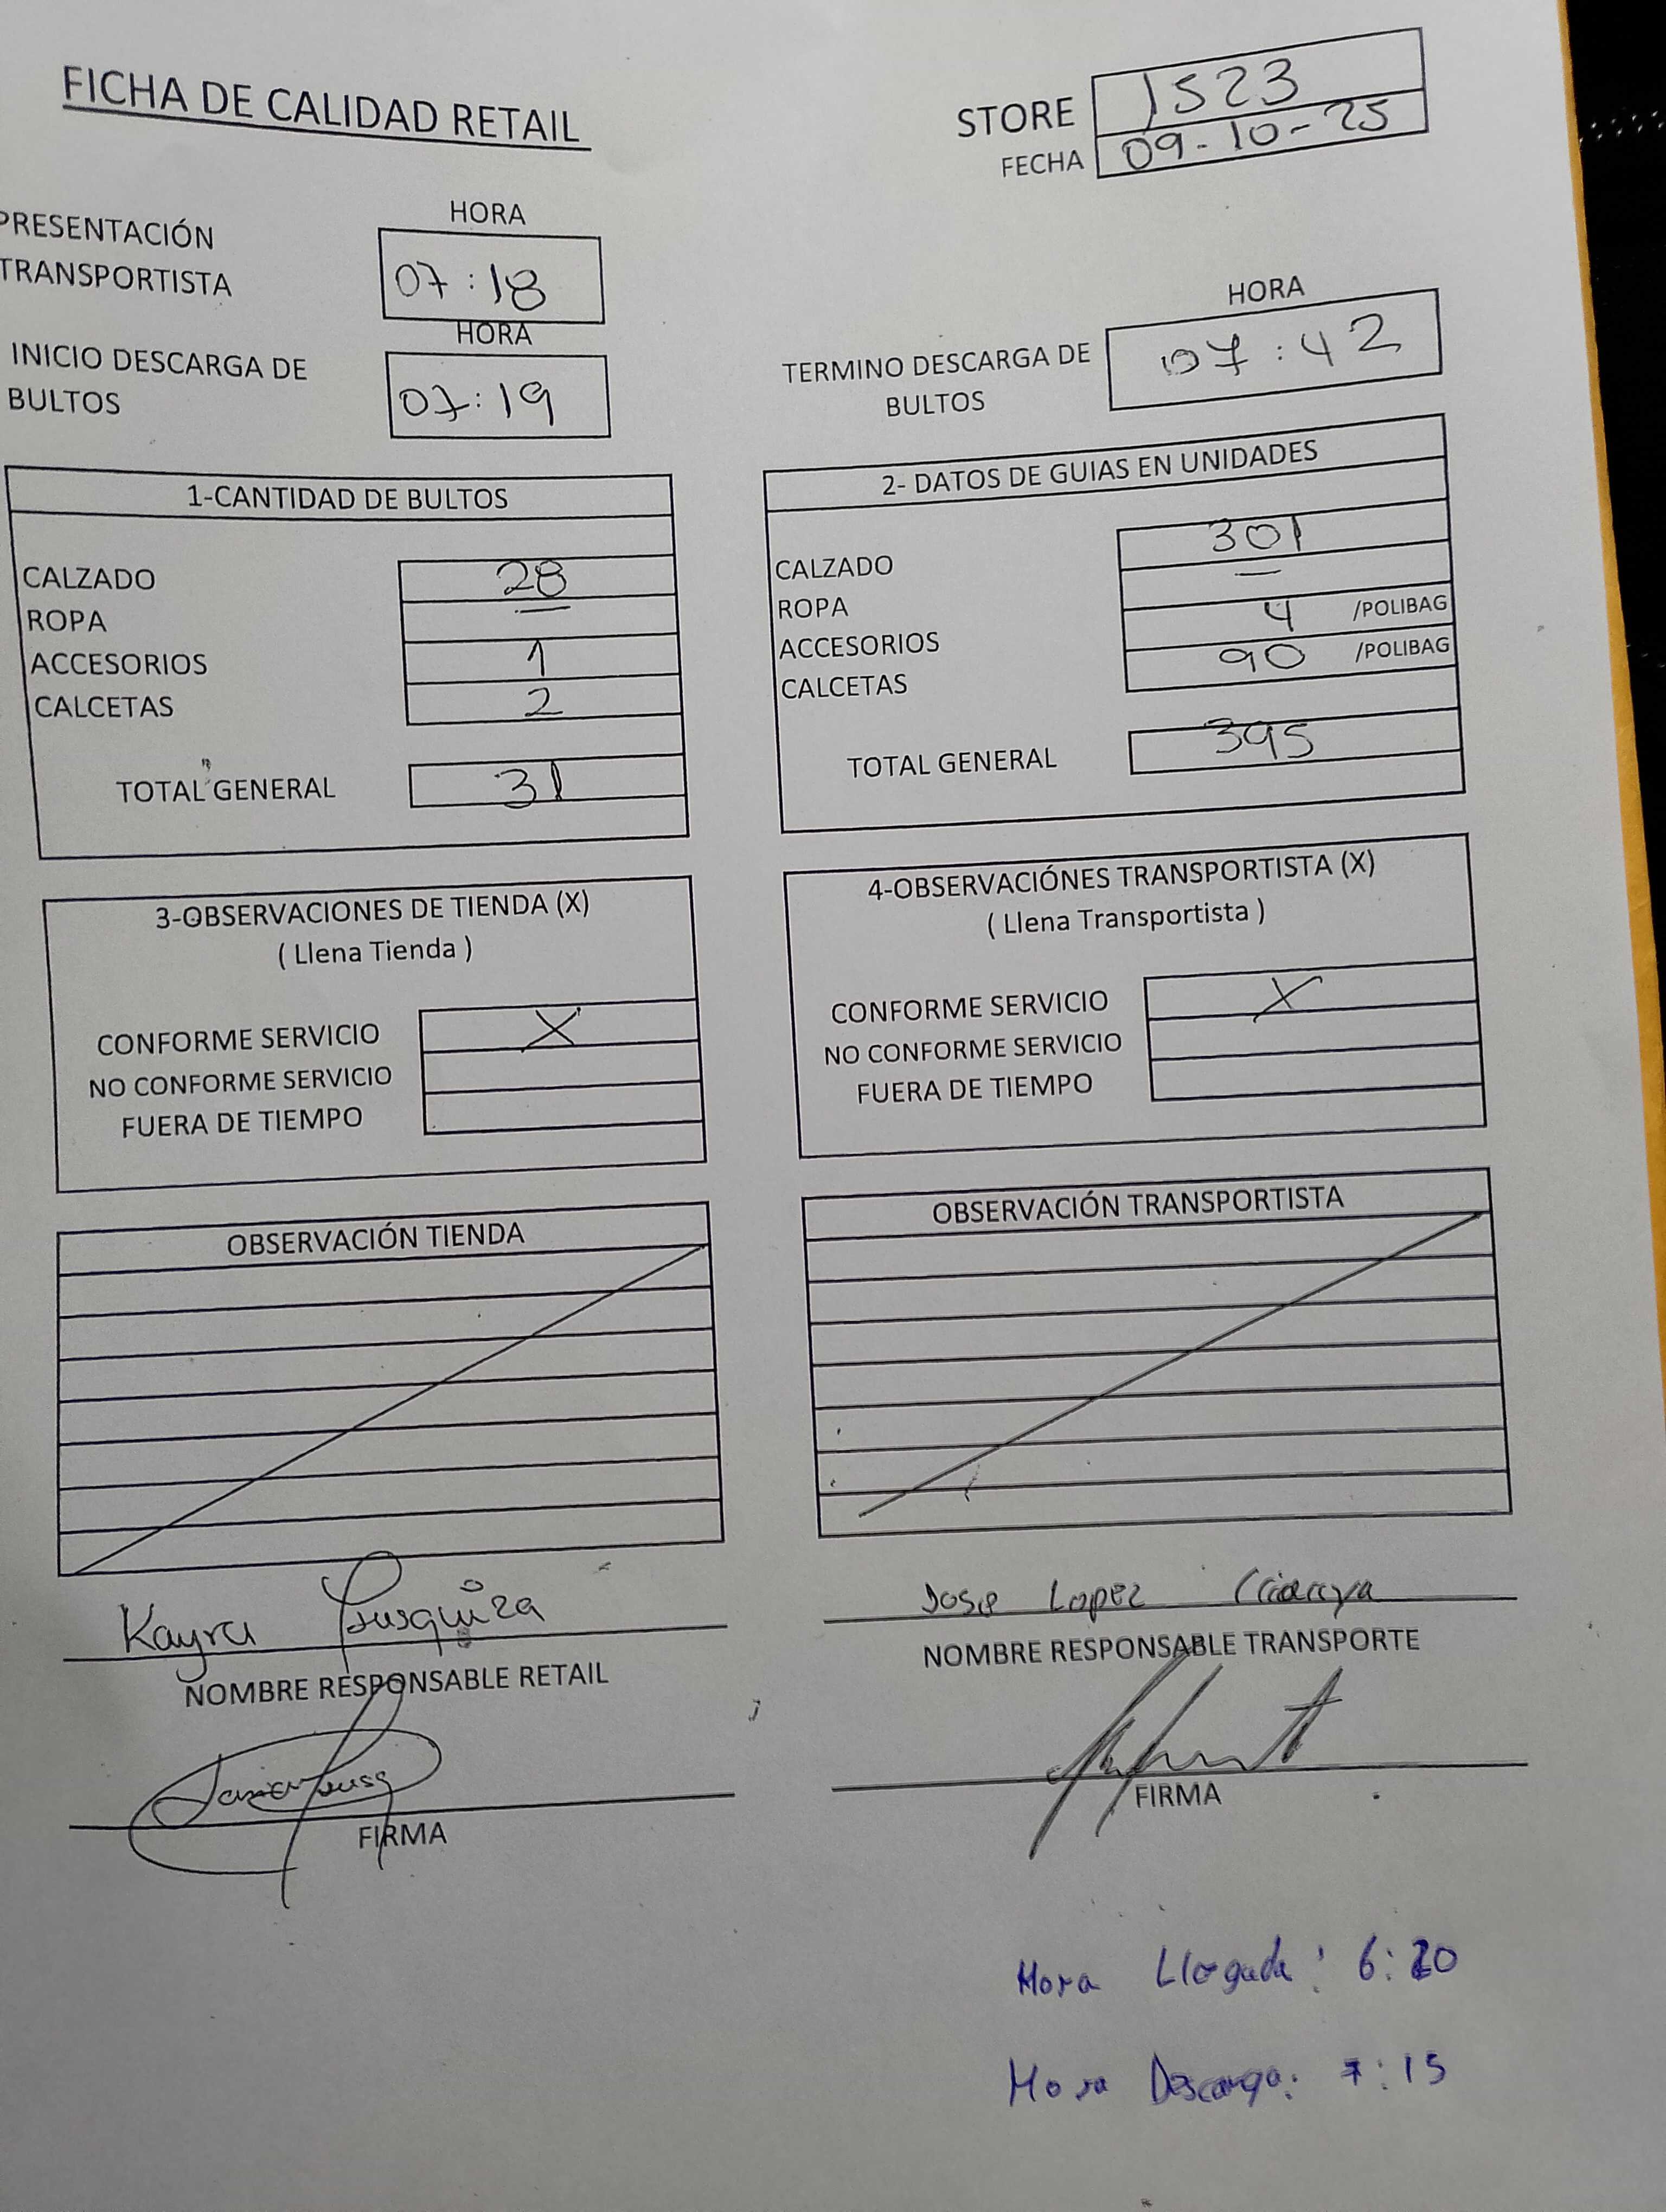 FICHA DE CALIDAD RETAIL
STORE 1523
FECHA 09-10-25
PRESENTACIÓN
TRANSPORTISTA
HORA
07:18
INICIO DESCARGA DE
BULTOS
HORA
07:19
TERMINO DESCARGA DE
BULTOS
HORA
07:42
1-CANTIDAD DE BULTOS
CALZADO 28
ROPA —
ACCESORIOS 1
CALCETAS 2
TOTAL GENERAL 31
2- DATOS DE GUIAS EN UNIDADES
CALZADO 301
ROPA —
ACCESORIOS 4 /POLIBAG
CALCETAS 90 /POLIBAG
TOTAL GENERAL 395
3-OBSERVACIONES DE TIENDA (X)
( Llena Tienda )
CONFORME SERVICIO X
NO CONFORME SERVICIO
FUERA DE TIEMPO
4-OBSERVACIÓNES TRANSPORTISTA (X)
( Llena Transportista )
CONFORME SERVICIO X
NO CONFORME SERVICIO
FUERA DE TIEMPO
OBSERVACIÓN TIENDA
OBSERVACIÓN TRANSPORTISTA
Kayra
NOMBRE RESPONSABLE RETAIL
FIRMA
Jose Lopez
NOMBRE RESPONSABLE TRANSPORTE
FIRMA
Hora Llegada: 6:20
Hora Descarga: 7:15